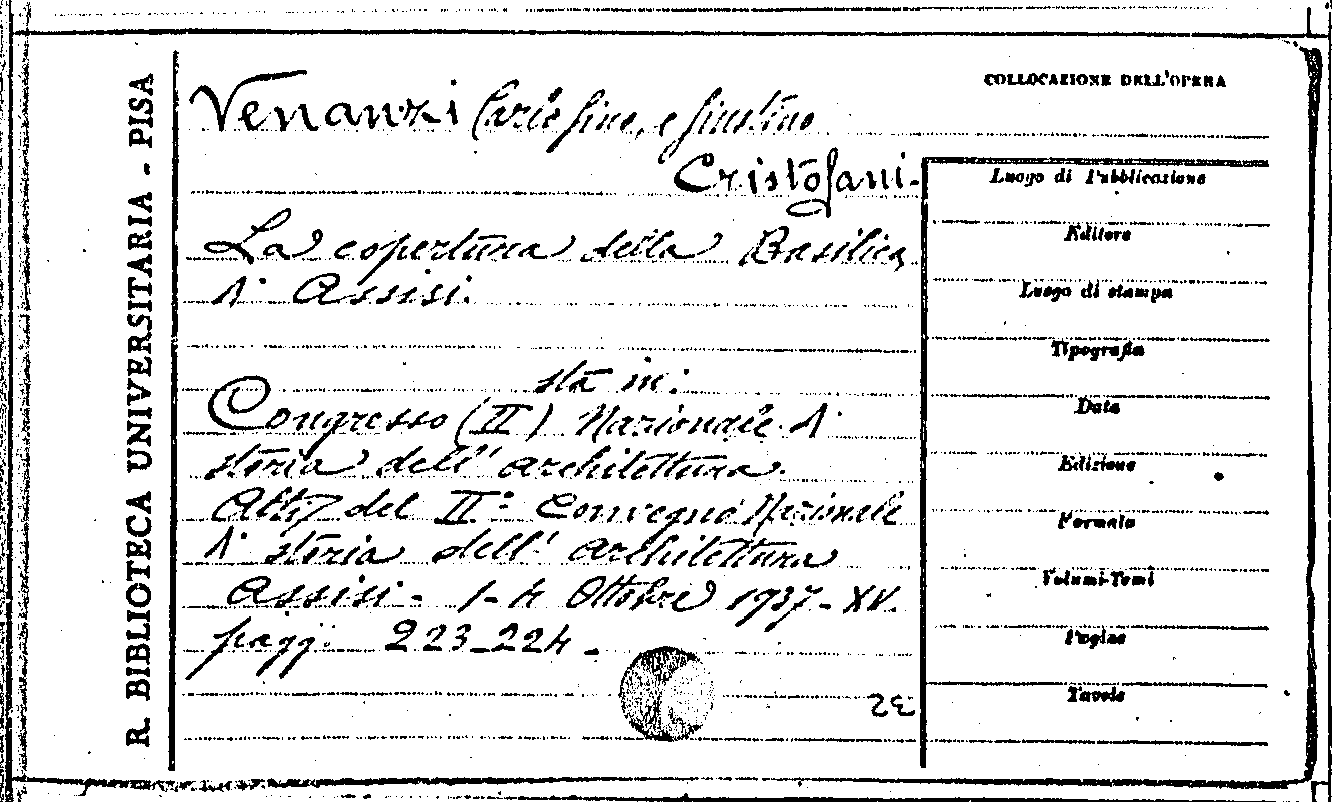 R. BIBLIOTECA UNIVERSITARIA - PISA
COLLOCAZIONE DELL'OPERA
Venanzi Carlo fino, e Giustino
Cristofani.
La copertura della Basilica
di Assisi.
sta in:
Congresso (II) Nazionale di
storia dell'architettura.
Atti del II° Convegno Nazionale
di storia dell'architettura
Assisi - 1-4 Ottobre 1937-XV.
pagg. 223-224 -
Luogo di Pubblicazione
Editore
Luogo di stampa
Tipografia
Data
Edizione
Formato
Volumi-Tomi
Pagine
Tavole